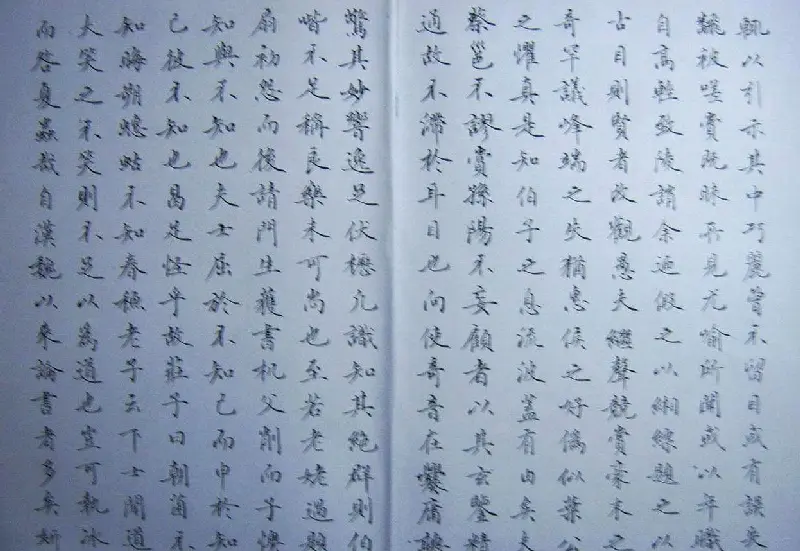 輒以引示其中巧麗曾不留目或有誤失
飜被嗟賞既昧所見尤喻所聞或以年職
自高輕致陵誚余迺假之以緗縹題之以
古目則賢者改觀愚夫繼聲競賞豪末之
奇罕議峰端之失猶惠侯之好偽似葉公
之懼真是知伯子之息流波蓋有由矣夫
蔡邕不謬賞孫陽不妄顧者以其玄鑒精
通故不滯於耳目也向使奇音在爨庸聽
驚其妙響逸足伏櫪凡識知其絕群則伯
喈不足稱良樂未可尚也至若老姥遇題
扇初怨而後請門生獲書机父削而子懊
知與不知也夫士屈於不知己而申於知
己彼不知也曷足怪乎故莊子曰朝菌不
知晦朔蟪蛄不知春穐老子云下士聞道
大笑之不笑則不足以為道也豈可執冰
而咎夏蟲哉自漢魏以來論書者多矣妍